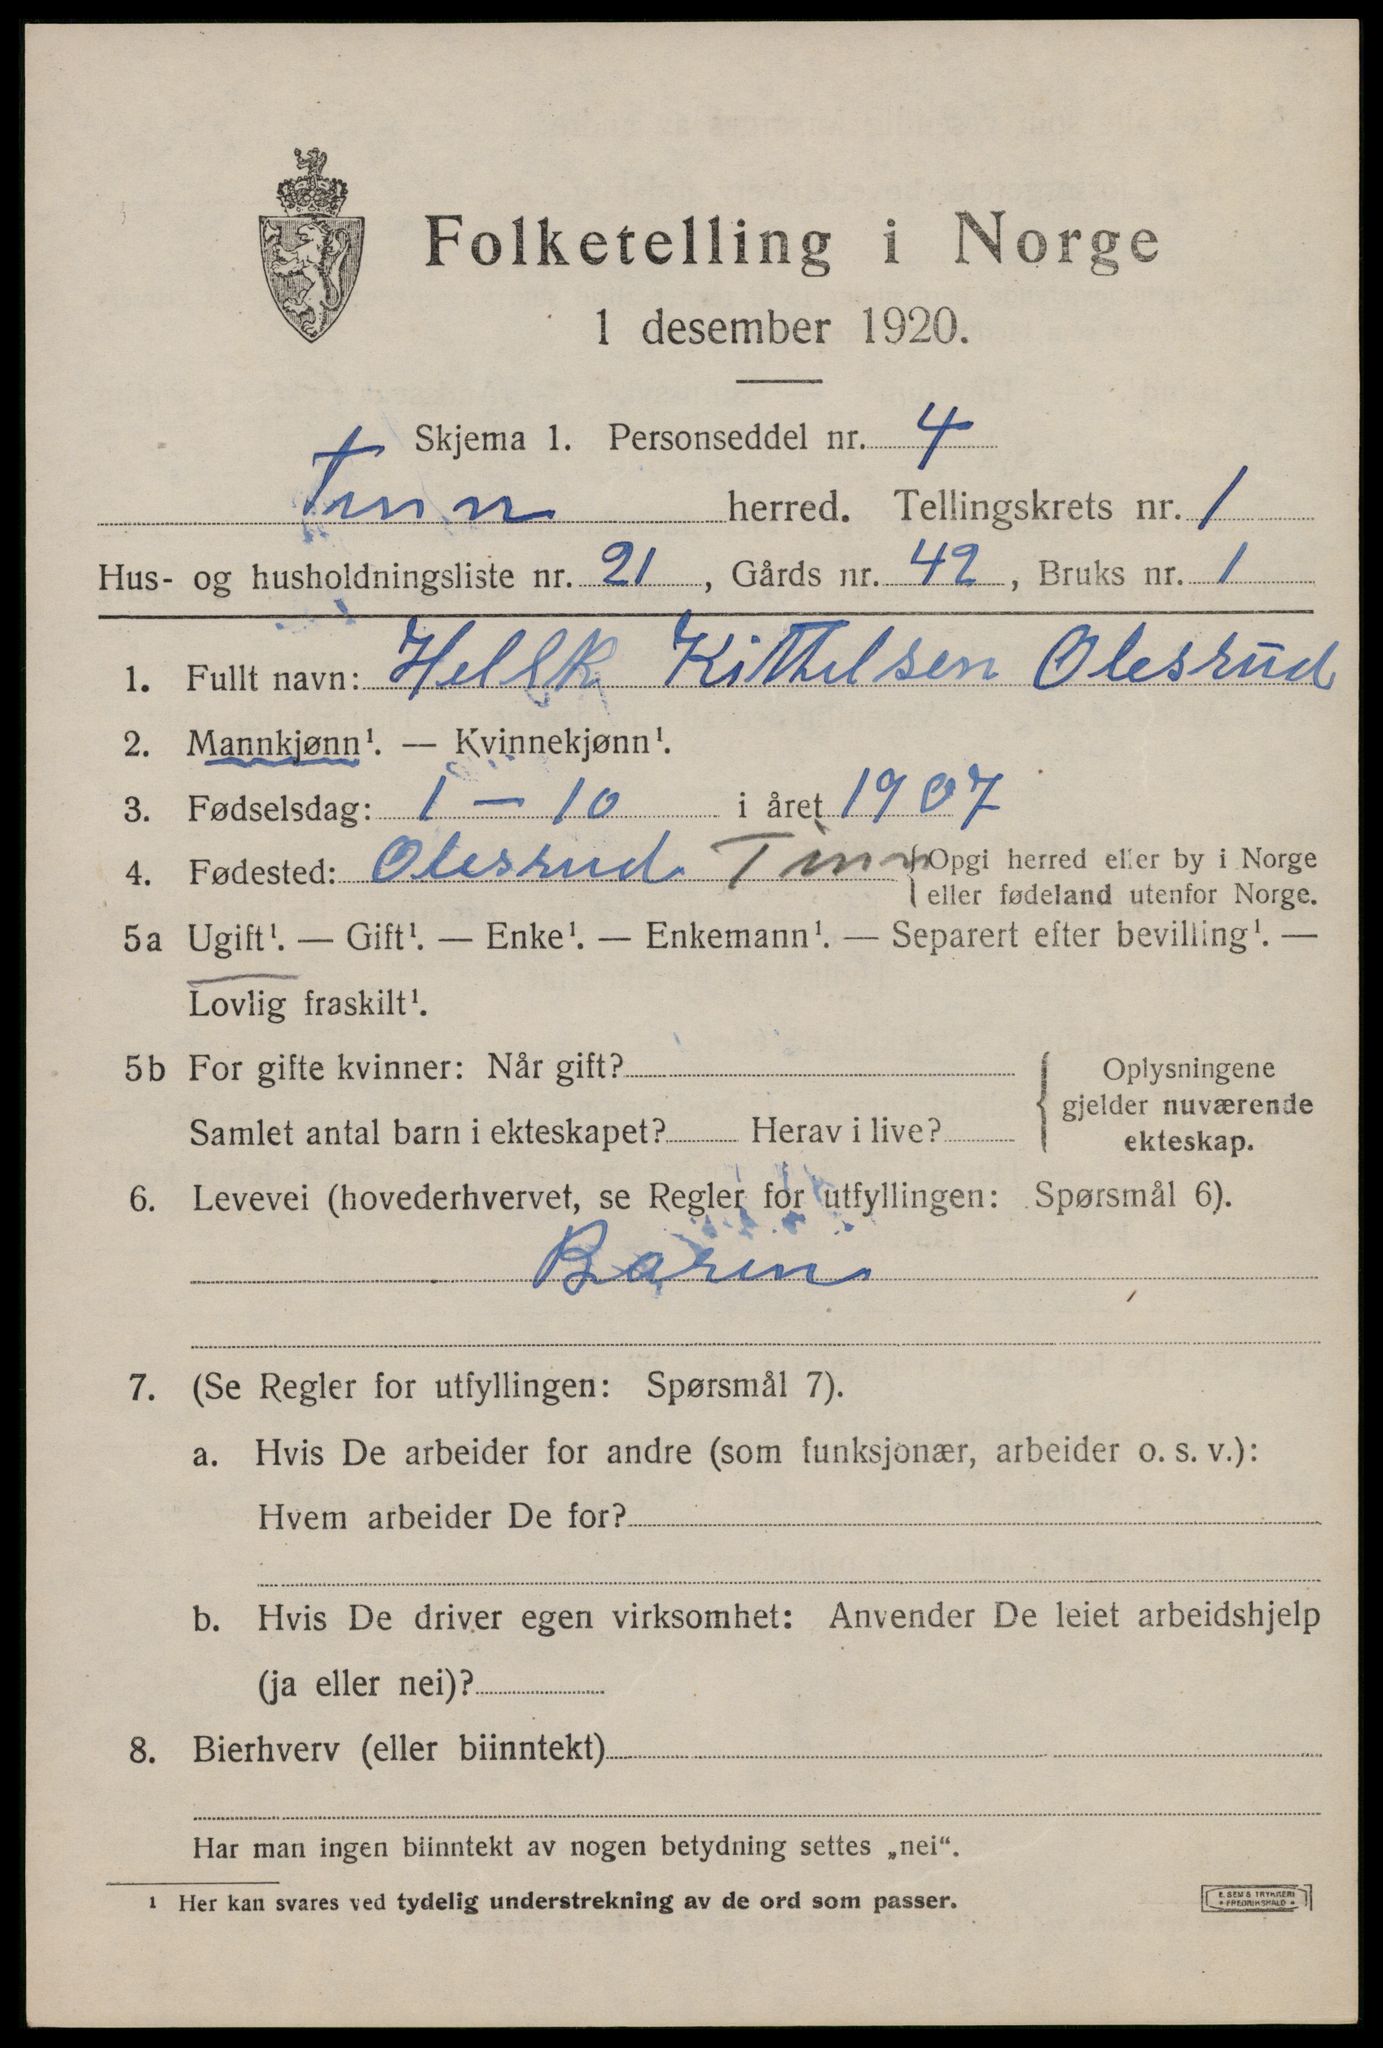 Folketelling i Norge
1 desember 1920.
Skjema 1. Personseddel nr. 4
Tinn herred. Tellingskrets nr. 1
Hus- og husholdningsliste nr. 21, Gårds nr. 42, Bruks nr. 1
1. Fullt navn: Hellik Kittelsen Olesrud
2. Mannkjønn¹. — Kvinnekjønn¹.
3. Fødselsdag: 1 – 10 i året 1907
4. Fødested: Olesrud Tinn { Opgi herred eller by i Norge
eller fødeland utenfor Norge.
5a Ugift¹. — Gift¹. — Enke¹. — Enkemann¹. — Separert efter bevilling¹. —
Lovlig fraskilt¹.
5b For gifte kvinner: Når gift?
Samlet antal barn i ekteskapet? Herav i live?
Oplysningene
gjelder nuværende
ekteskap.
6. Levevei (hovederhvervet, se Regler for utfyllingen: Spørsmål 6).
7. (Se Regler for utfyllingen: Spørsmål 7).
a. Hvis De arbeider for andre (som funksjonær, arbeider o. s. v.):
Hvem arbeider De for?
b. Hvis De driver egen virksomhet: Anvender De leiet arbeidshjelp
(ja eller nei)?
8. Bierhverv (eller biinntekt)
Har man ingen biinntekt av nogen betydning settes „nei“.
¹ Her kan svares ved tydelig understrekning av de ord som passer.
E. SEM'S TRYKKERI
• FREDRIKSHALD •